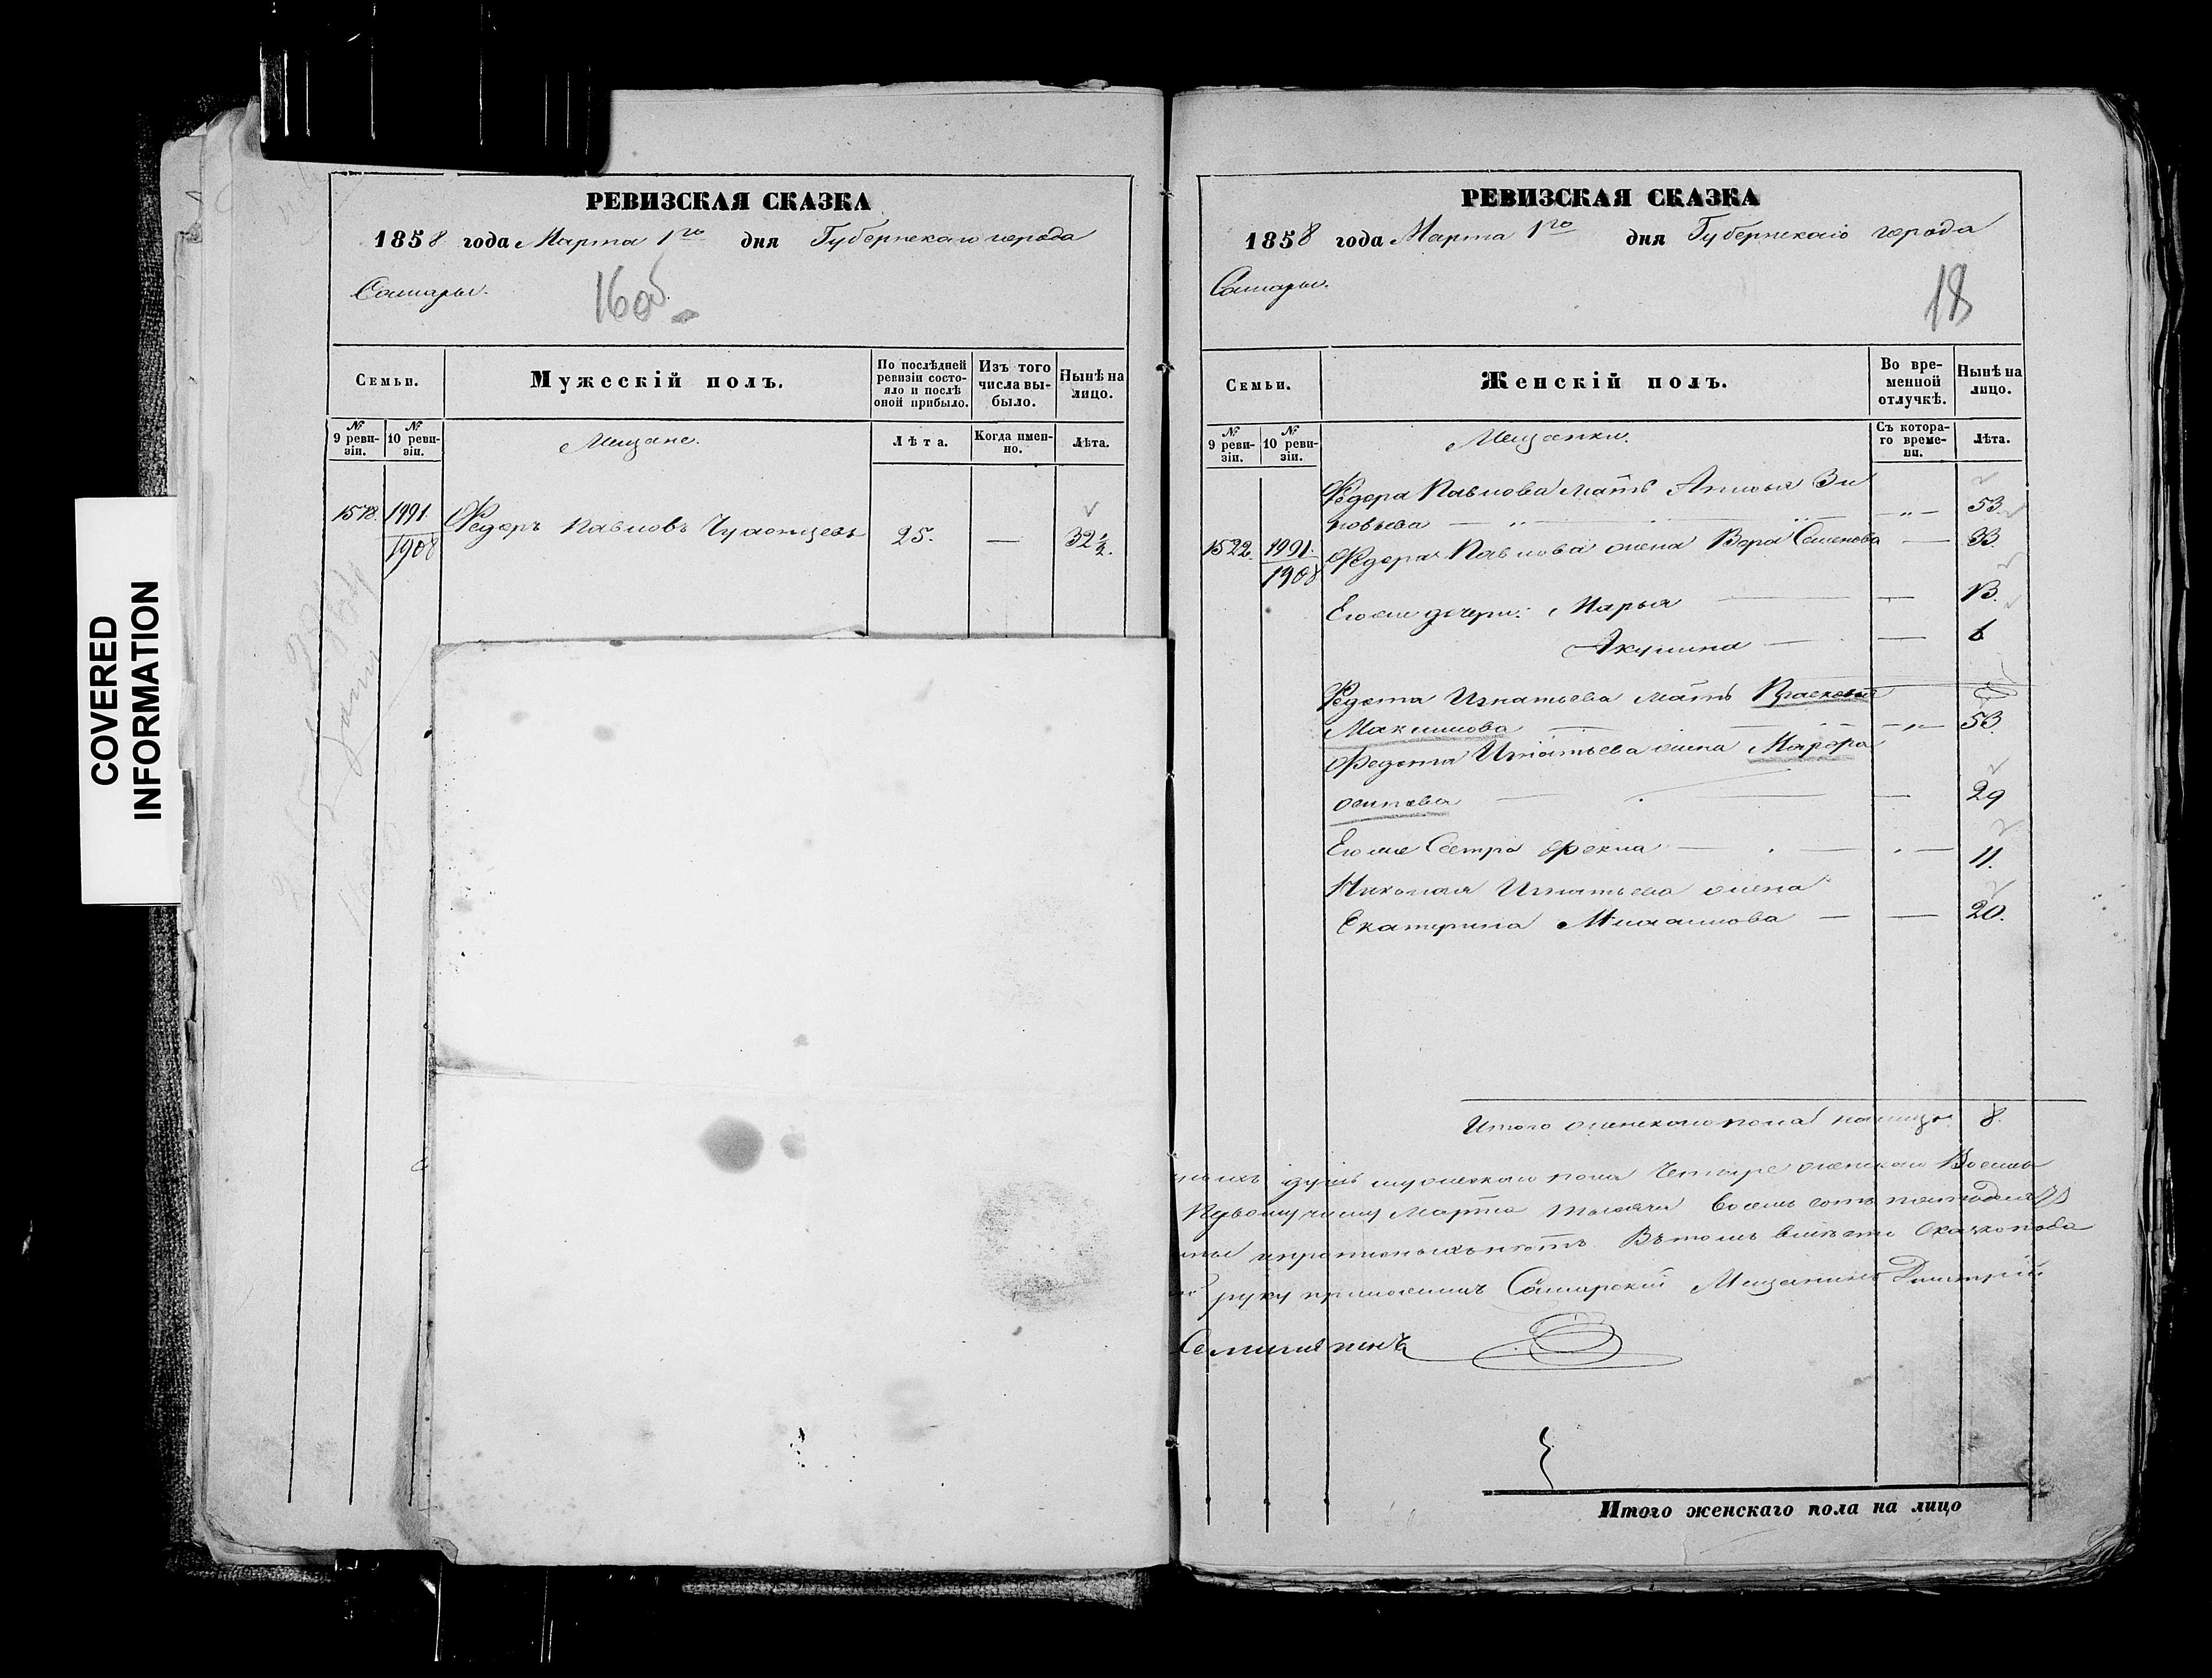 COVERED
INFORMATION
РЕВИЗСКАЯ СКАЗКА
1858 года Марта 1го дня Губернскаго города
Самары.
16об
Семьи.
Мужескій полъ.
По послѣдней
ревизіи состо-
яло и послѣ
оной прибыло.
Изъ того
числа вы-
было.
Нынѣ на
лицо.
№
9 реви-
зіи.
№
10 реви-
зіи.
Мещане.
Лѣта.
Когда имен-
но.
Лѣта.
1578. 1991. Федоръ Павловъ 25. — 32½.
1908
РЕВИЗСКАЯ СКАЗКА
1858 года Марта 1го дня Губернскаго города
Самары.
18
Семьи.
Женскій полъ.
Во вре-
менной
отлучкѣ.
Нынѣ на
лицо.
№
9 реви-
зіи.
№
10 реви-
зіи.
Мещанки.
Съ котора-
го време-
ни.
Лѣта.
Федора Павлова мать Зи
новьева — 53.
1522. 1991. Федора Павлова жена Вера Семенова — 33.
1908
Его же дочери: Марья — 13.
Акулина — 6
Федота Игнатьева мать Прасковья
Максимова — 53.
Федота Игнатьева жена Марфа
осипова — 29
Его же Сестра Фекла — 11.
Николая Игнатьева жена
Екатерина — 20.
Итого женскаго пола налицо 8.
душъ мужескаго пола Четыре женскаго Восемь
Первому числу Марта тысяча восемь сотъ
Въ томъ вместо
руку приложилъ Самарскій Мещанинъ Дмитрій
Итого женскаго пола на лицо